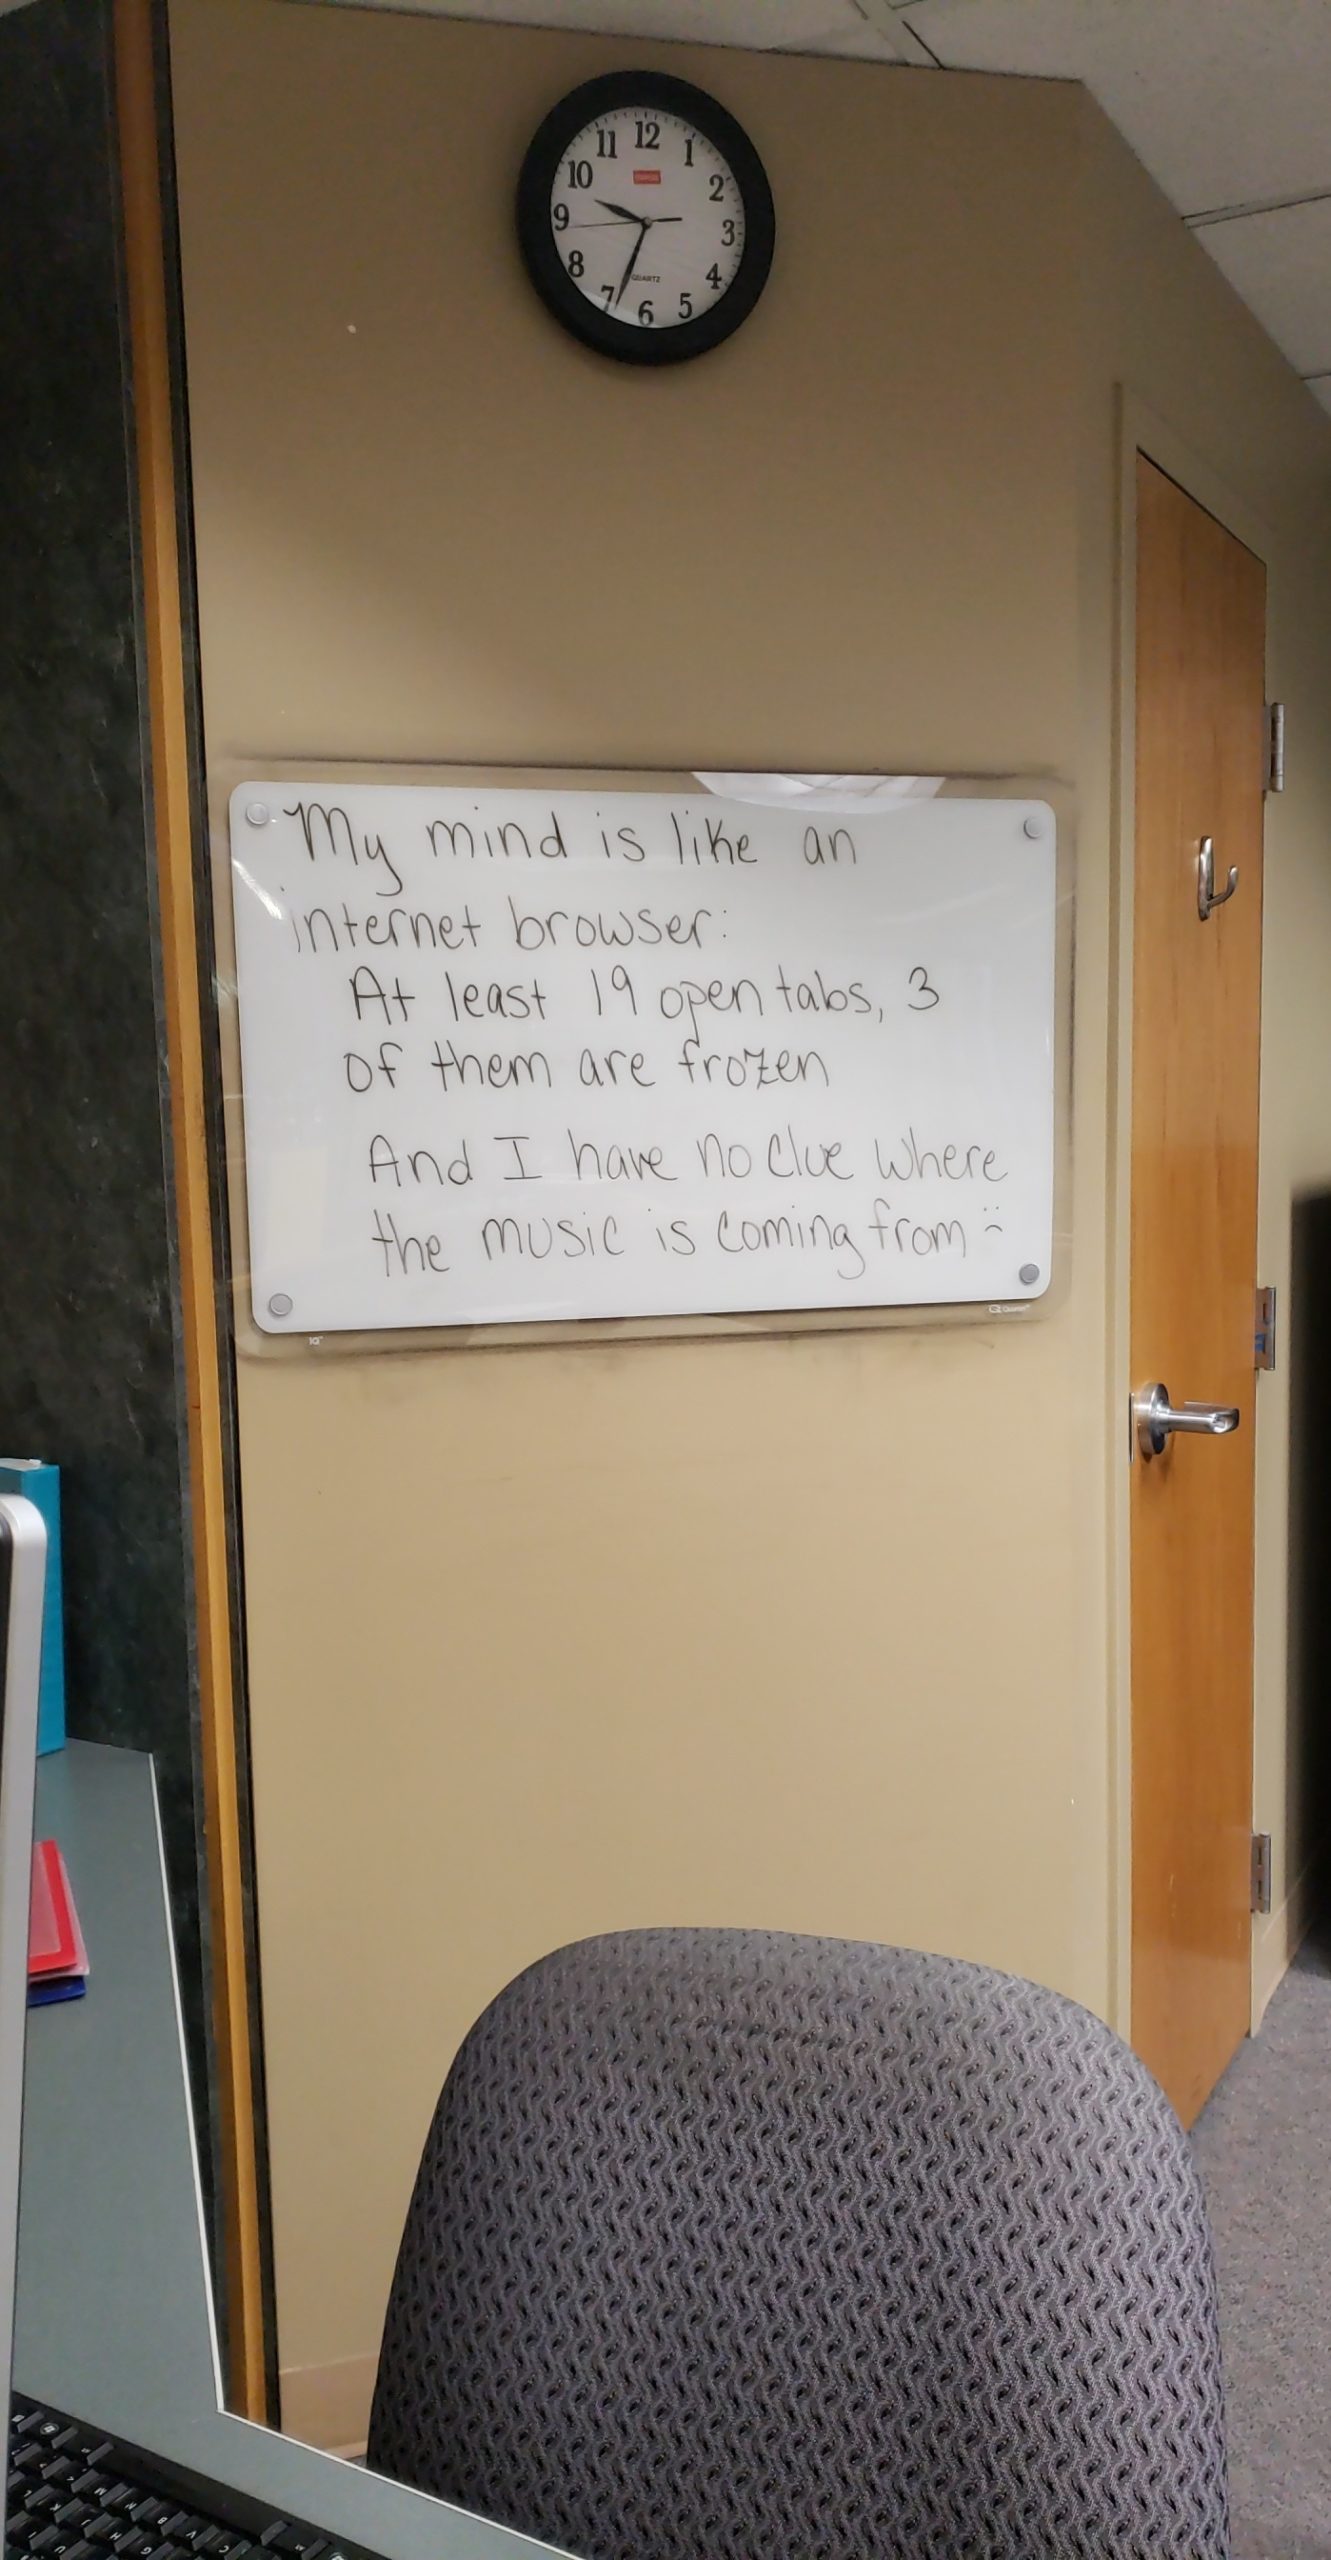 12
1
2
3
4
5
6
7
8
9
10
11
QUARTZ
My mind is like an
internet browser:
At least 19 open tabs, 3
of them are frozen
And I have no clue where
the music is coming from :(
Quartet